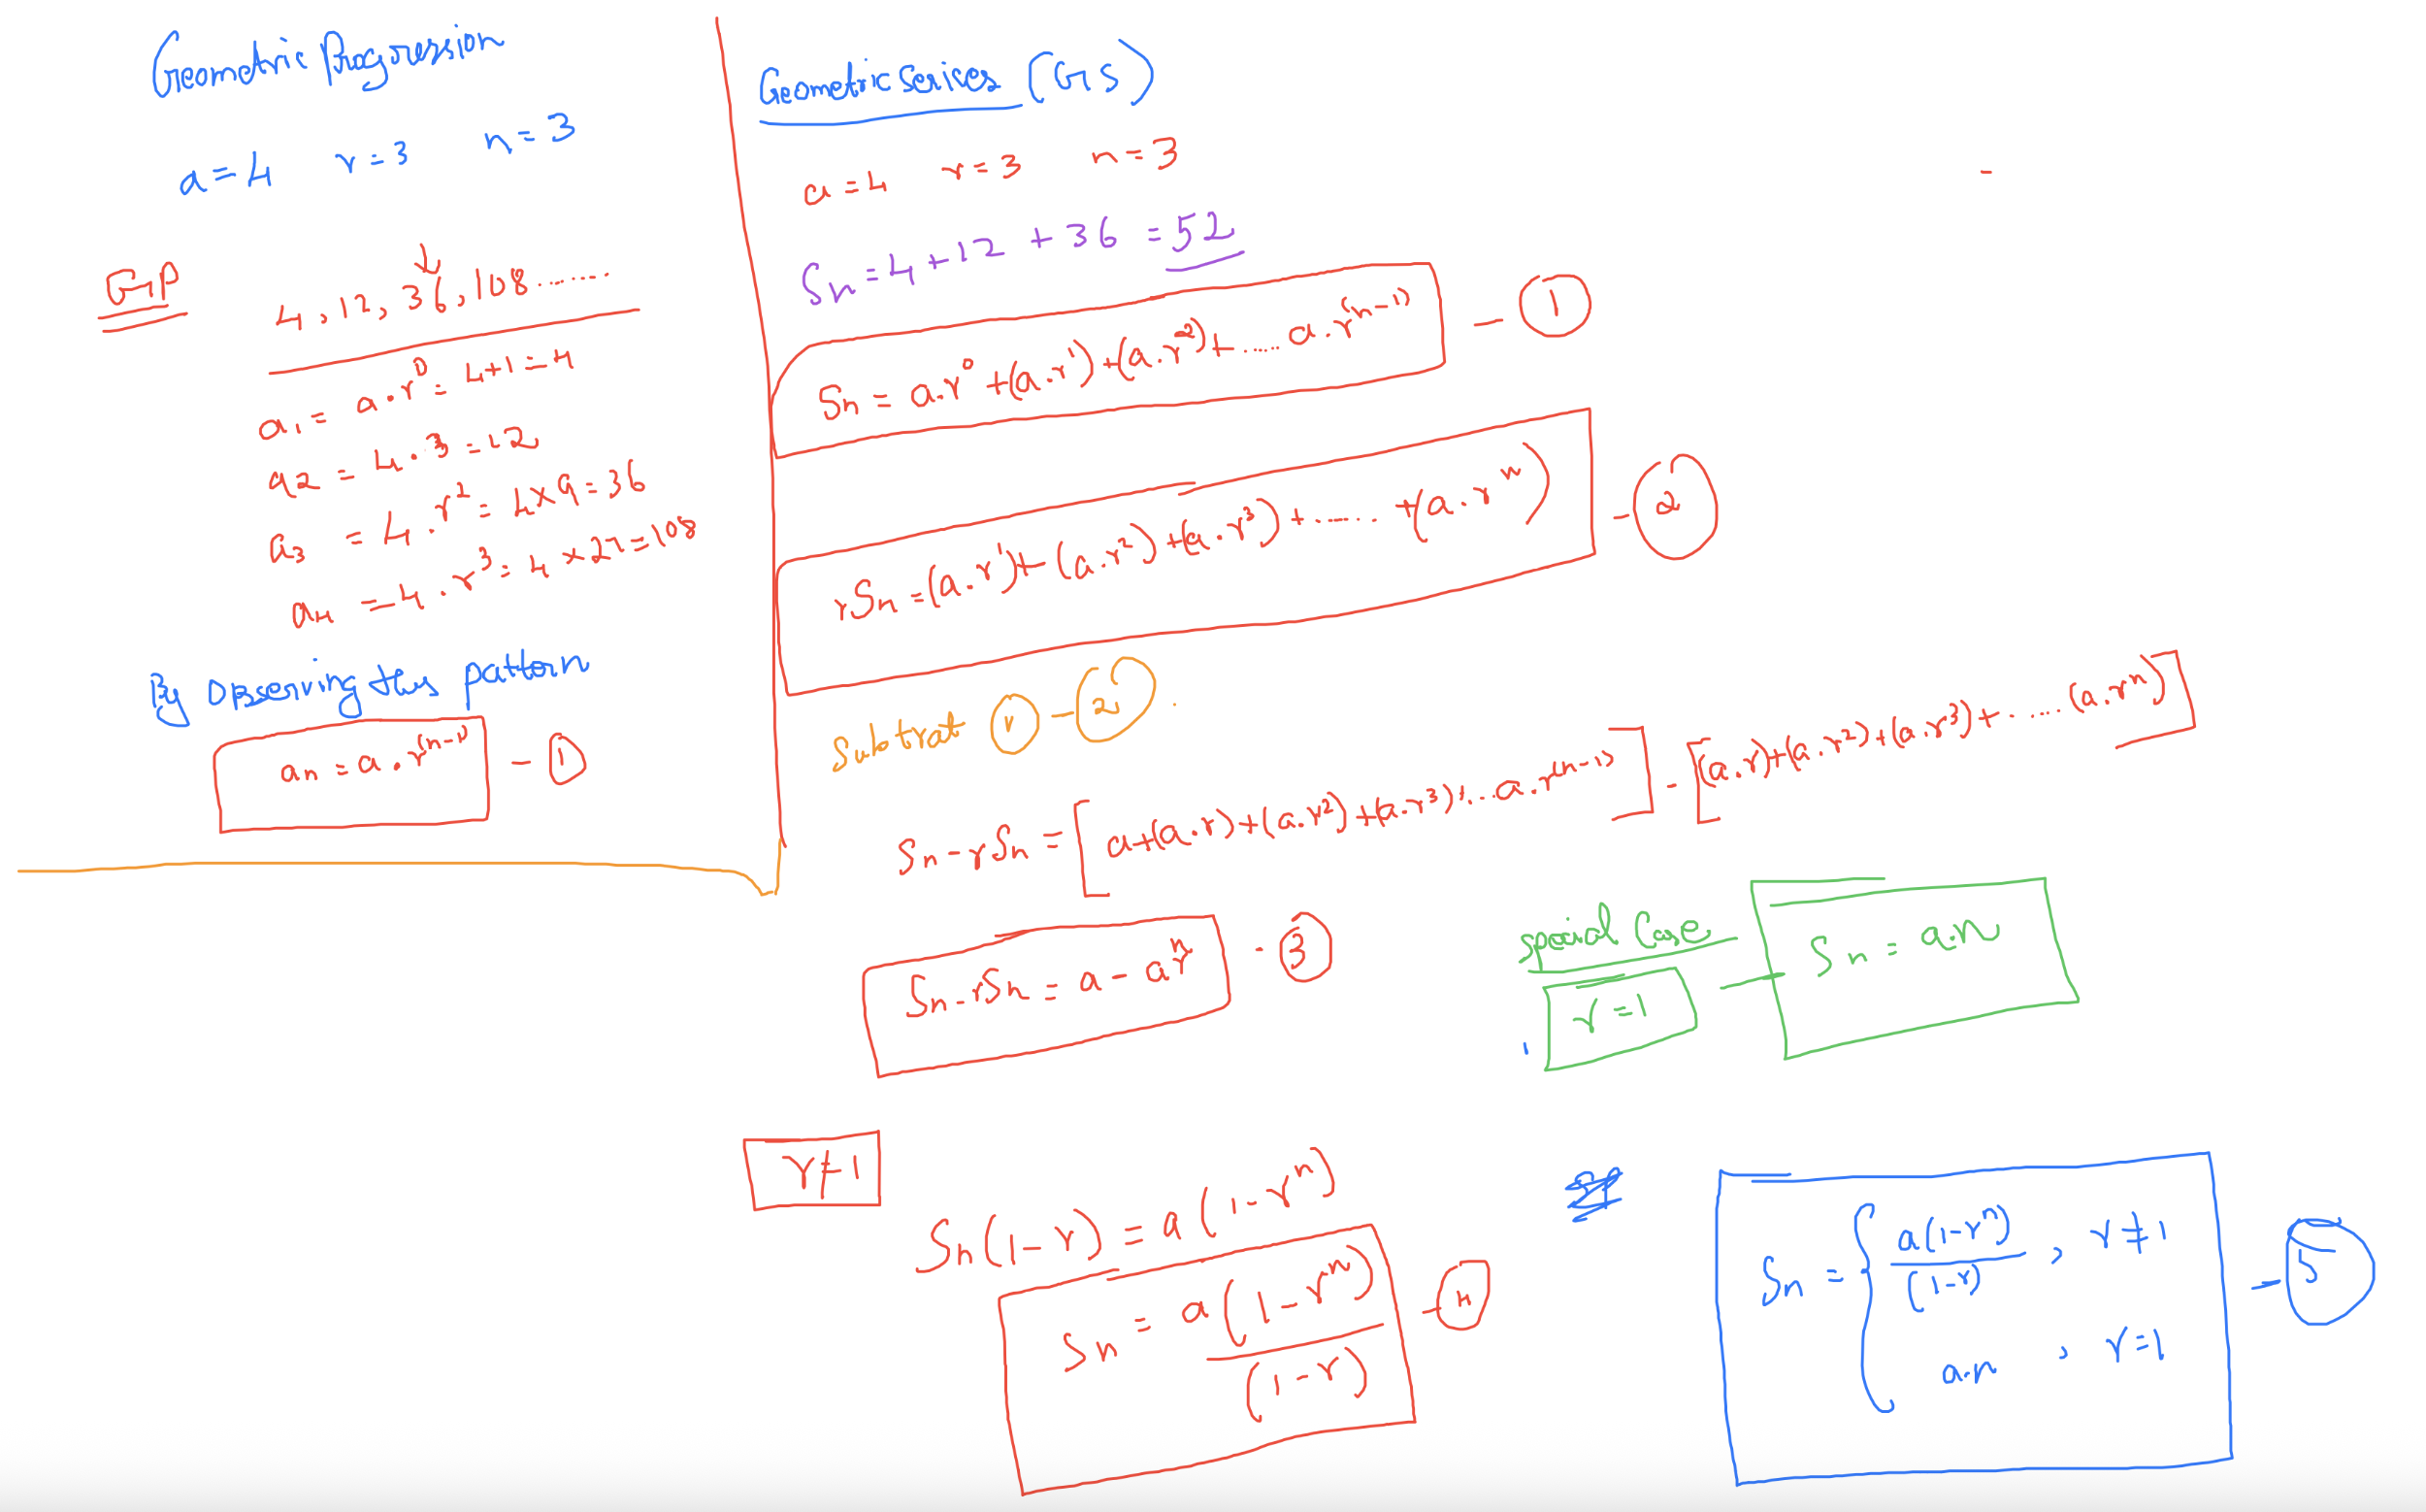 Geometric Progression
a = 4 r = 3 n = 3
GP
4, 12, 36, 108 ........
a1 = a.r^0 = 4+1 = 4
a2 = 4.3 = 12
a3 = 4.r^2 = 4×9 = 36
a4 = 4.r^3 = 4×27 = 108
By observing this pattern
an = a.r^(n-1) - ①
Geometric Series (GS)
a = 4 r = 3 n = 3
Sn = 4+12+36 = 52
Sn = a.r^0 + (a.r^1) + (a.r^2) + ..... a.r^(n-1) - ①
rSn = (a.r^1) + (a.r^2) + (a.r^3) + ...... + (a.r^n) - ②
Subtrat ① - ②
Sn - rSn = [a+(a.r)+(a.r^2)+(a.r^3)+...a.r^(n-1)] - [(a.r)+(a.r^2)+(a.r^3)+......(a.r^n)]
Sn - rSn = a - ar^n - ③
Special Case
r = 1 - Sn = a.n
r ≠ 1
Sn(1-r) = a(1-r^n)
Sn = a(1-r^n)/(1-r) - ④
Sn = { a(1-r^n)/(1-r) , r ≠ 1
a.n , r = 1 - ⑤